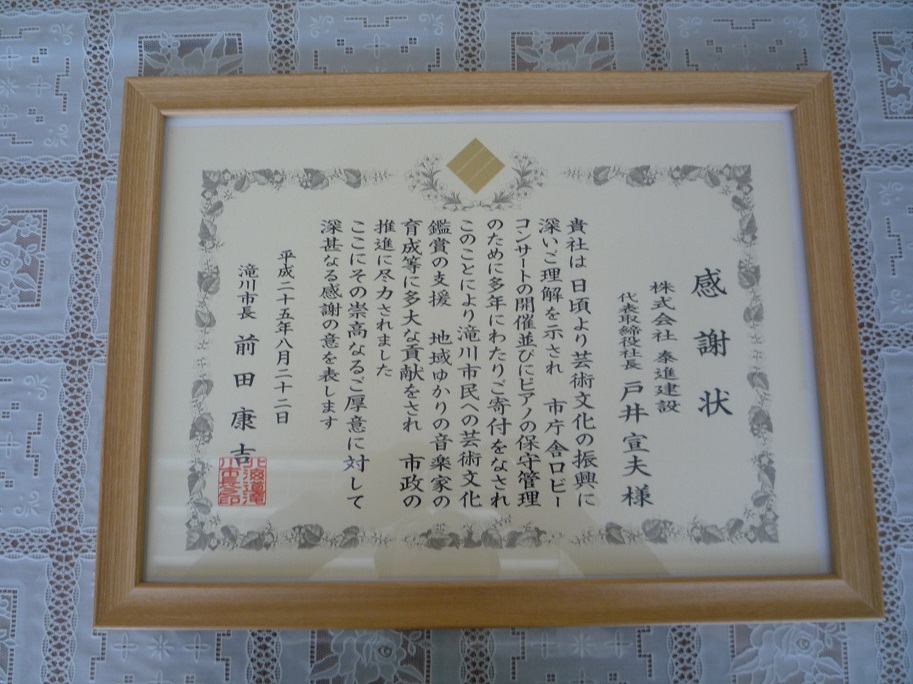 感謝状
株式会社 泰進建設
代表取締役社長 戸井宣夫様
貴社は日頃より芸術文化の振興に
深いご理解を示され 市庁舎ロビー
コンサートの開催並びにピアノの保守管理
のために多年にわたりご寄付をなされ
このことにより滝川市民への芸術文化
鑑賞の支援 地域ゆかりの音楽家の
育成等に多大な貢献をされ 市政の
推進に尽力されました
ここにその崇高なるご厚意に対して
深甚なる感謝の意を表します
平成二十五年八月二十二日
滝川市長 前田康吉